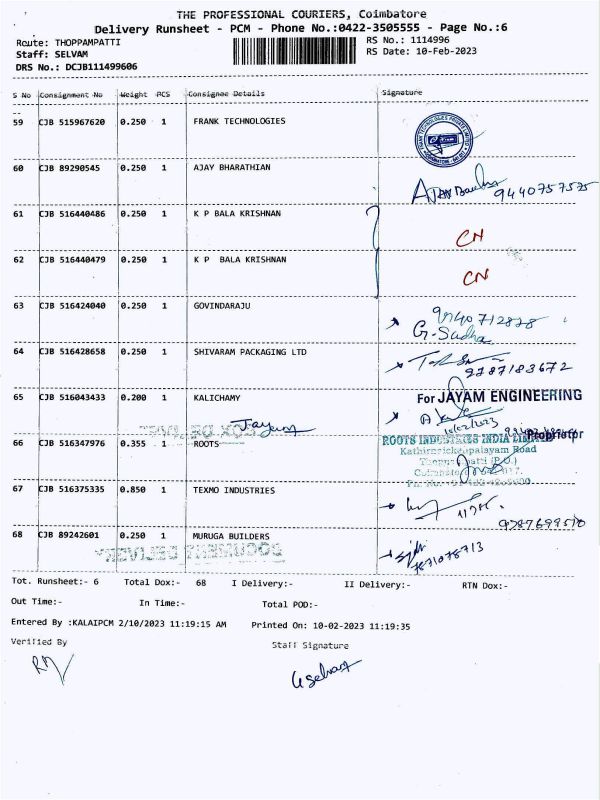 THE PROFESSIONAL COURIERS, Coimbatore
Delivery Runsheet - PCM - Phone No.:0422-3505555 - Page No.:6
Route: THOPPAMPATTI RS No.: 1114996
Staff: SELVAM RS Date: 10-Feb-2023
DRS No.: DCJB111499606
S No Consignment No Weight PCS Consignee Details Signature
59 CJB 515967620 0.250 1 FRANK TECHNOLOGIES
60 CJB 89290545 0.250 1 AJAY BHARATHIAN
9440757575
61 CJB 516440486 0.250 1 K P BALA KRISHNAN
CN
62 CJB 516440479 0.250 1 K P BALA KRISHNAN
CN
63 CJB 516424040 0.250 1 GOVINDARAJU
G. Sudha
64 CJB 516428658 0.250 1 SHIVARAM PACKAGING LTD
9787183672
65 CJB 516043433 0.200 1 KALICHAMY For JAYAM ENGINEERING
10/02/2023
Proprietor
66 CJB 516347976 0.355 1 ROOTS ROOTS INDUSTRIES INDIA LIMITED
67 CJB 516375335 0.850 1 TEXMO INDUSTRIES
68 CJB 89242601 0.250 1 MURUGA BUILDERS
7871078713
Tot. Runsheet:- 6 Total Dox:- 68 I Delivery:- II Delivery:- RTN Dox:-
Out Time:- In Time:- Total POD:-
Entered By :KALAIPCM 2/10/2023 11:19:15 AM Printed On: 10-02-2023 11:19:35
Verified By Staff Signature